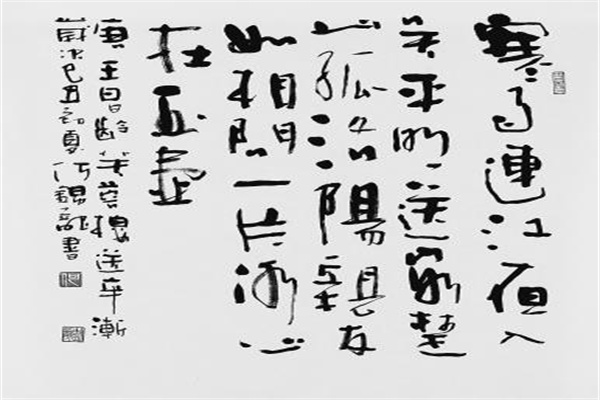 寒雨連江夜入
吴平明送客楚
山孤洛陽親友
如相問一片冰心
在玉壶
王昌齡芙蓉楼送辛漸
歲次己丑初夏何錫書